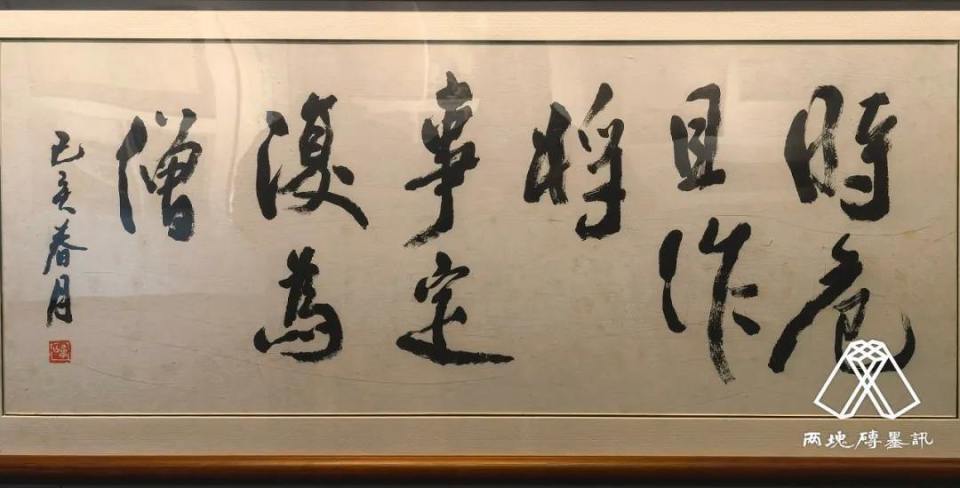 時危
且作
將
事定
復為
僧
己亥春月
两地磚墨訊